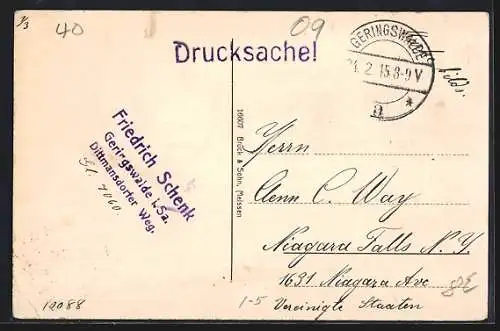 1/3
40
09
Drucksache!
GERINGSWALDE
2. 15. 8-9 V
a *
Friedrich Schenk
Geringswalde i. Sa.
Dittmansdorter Weg.
7060
16607 Brück & Sohn, Meissen
Herrn
Glenn C. Way
Niagara Falls N. Y.
1631 Niagara Ave
1-5 Vereinigte Staaten
19088